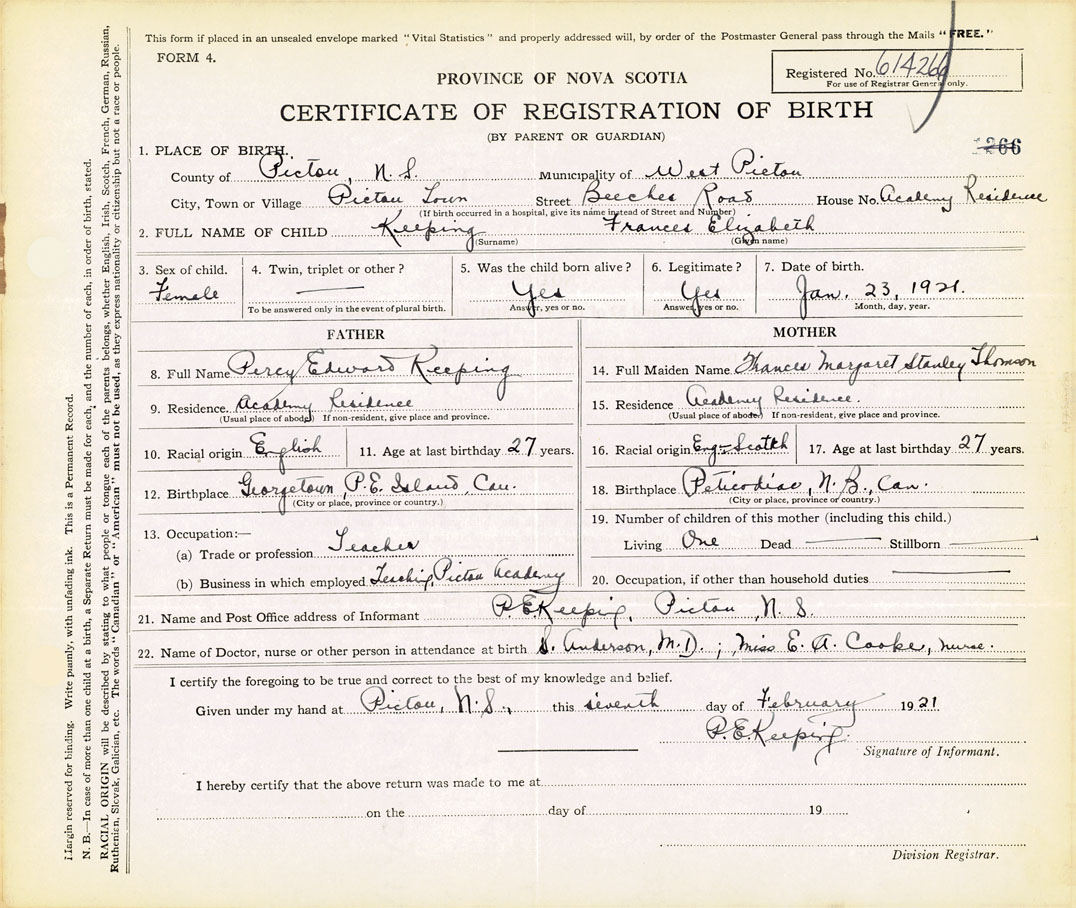 This form if placed in an unsealed envelope marked "Vital Statistics" and properly addressed will, by order of the Postmaster General pass through the Mails "FREE."
FORM 4.
Registered No. 614266
For use of Registrar General only.
PROVINCE OF NOVA SCOTIA
CERTIFICATE OF REGISTRATION OF BIRTH
(BY PARENT OR GUARDIAN)
1266
1. PLACE OF BIRTH.
County of Pictou, N.S. Municipality of West Pictou
City, Town or Village Pictou Town Street Beeches Road House No. Academy Residence
(If birth occurred in a hospital, give its name instead of Street and Number)
2. FULL NAME OF CHILD Keeping Frances Elizabeth
(Surname) (Given name)
3. Sex of child. 4. Twin, triplet or other? 5. Was the child born alive? 6. Legitimate? 7. Date of birth.
Female Yes Yes Jan. 23, 1921.
To be answered only in the event of plural birth. Answer, yes or no. Answer, yes or no. Month, day, year.
FATHER
8. Full Name Percy Edward Keeping
9. Residence Academy Residence
(Usual place of abode) If non-resident, give place and province.
10. Racial origin English 11. Age at last birthday 27 years.
12. Birthplace Georgetown, P.E. Island, Can.
(City or place, province or country.)
13. Occupation:—
(a) Trade or profession Teacher
(b) Business in which employed Teaching, Pictou Academy
MOTHER
14. Full Maiden Name Frances Margaret Stanley Thomson
15. Residence Academy Residence.
(Usual place of abode) If non-resident, give place and province.
16. Racial origin Eng-Scotch 17. Age at last birthday 27 years.
18. Birthplace Peticodiac, N.B., Can.
(City or place, province or country.)
19. Number of children of this mother (including this child.)
Living One Dead Stillborn
20. Occupation, if other than household duties
21. Name and Post Office address of Informant P.E.Keeping, Pictou, N.S.
22. Name of Doctor, nurse or other person in attendance at birth S. Anderson, M.D.; Miss E. A. Cooke, nurse.
I certify the foregoing to be true and correct to the best of my knowledge and belief.
Given under my hand at Pictou, N.S., this seventh day of February 1921
P.E.Keeping.
Signature of Informant.
I hereby certify that the above return was made to me at
on the day of 19
Division Registrar.
Margin reserved for binding. Write plainly, with unfading ink. This is a Permanent Record.
N. B.—In case of more than one child at a birth, a Separate Return must be made for each, and the number of each, in order of birth, stated.
RACIAL ORIGIN will be described by stating to what people or tongue each of the parents belongs, whether English, Irish, Scotch, French, German, Russian,
Ruthenian, Slovak, Galician, etc. The words "Canadian" or "American" must not be used, as they express nationality or citizenship but not a race or people.